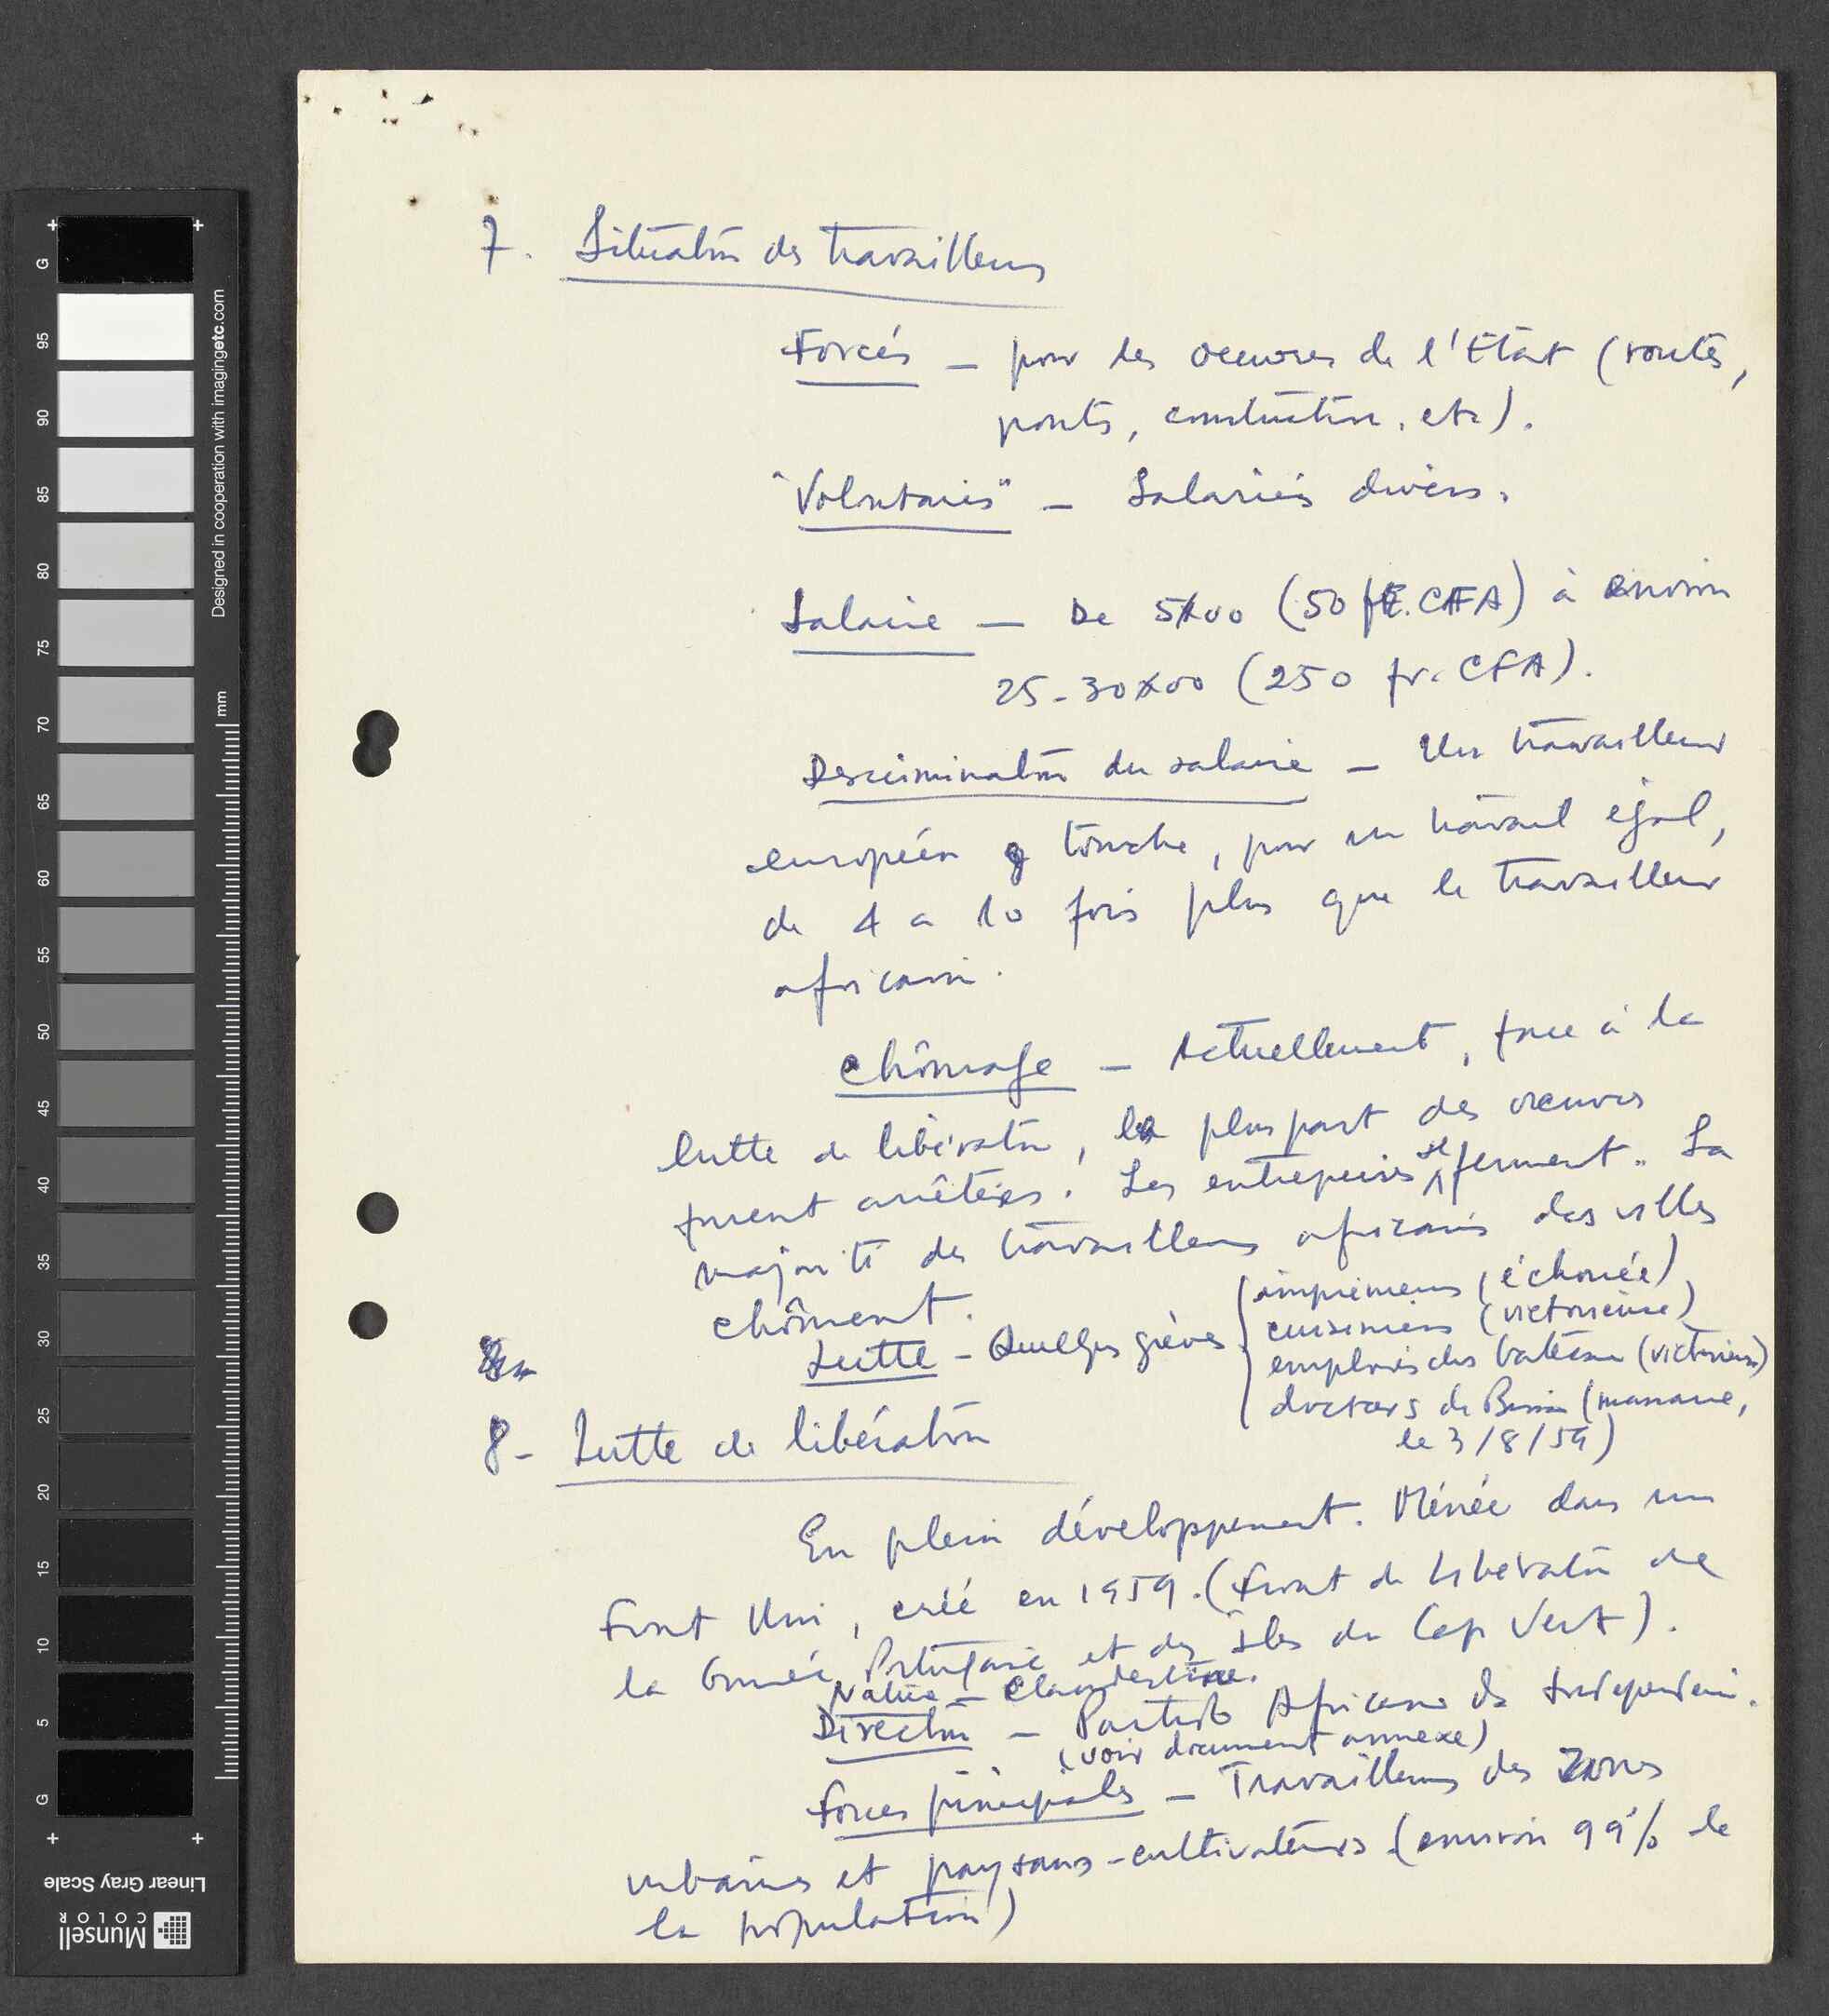 7. Situation des travailleurs
Forcés — pour les oeuvres de l'Etat (routes,
ponts, construction, etc).
"Volontaires" — Salariés divers.
Salaire — De 5$00 (50 fr. CFA) à environ
25-30$00 (250 fr. CFA).
Descrimination du salaire — Un travailleur
européen touche, pour un travail égal,
de 4 a 10 fois plus que le travailleur
africain.
Chômage — Actuellement, face à la
lutte de libération, la pluspart des oeuvres
furent arrêtées. Les entreprises se ferment. La
majorité des travailleurs africains des villes
chôment.
Lutte — Quelques grèves
imprimeurs (échouée)
cuisiniers (victorieuse)
employés des bateaux (victorieuse)
doctors de Bissau (massacre,
le 3/8/59)
8- Lutte de libération
En plein développement. Ménée dans un
Front Uni, créé en 1959. (Front de Libération de
la Guinée Portugaise et des Iles du Cap Vert).
Nature — Clandestine.
Direction — Partido Africano da Independen.
(voir document annexe)
Forces principales — Travailleurs des zones
urbaines et paysans-cultivateurs (environ 99% de
la population)
Munsell
COLOR
Linear Gray Scale
Designed in cooperation with imagingetc.com
mm
G 95 90 85 80 75 70 65 60 55 50 45 40 35 30 25 20 15 10 5 G